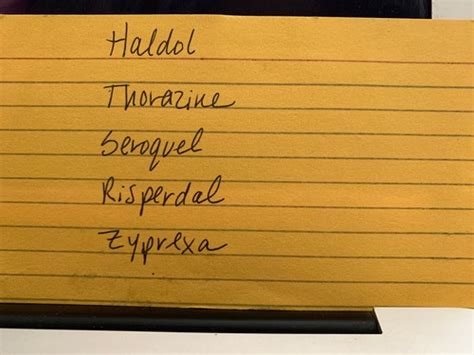 Haldol
Thorazine
Seroquel
Risperdal
Zyprexa